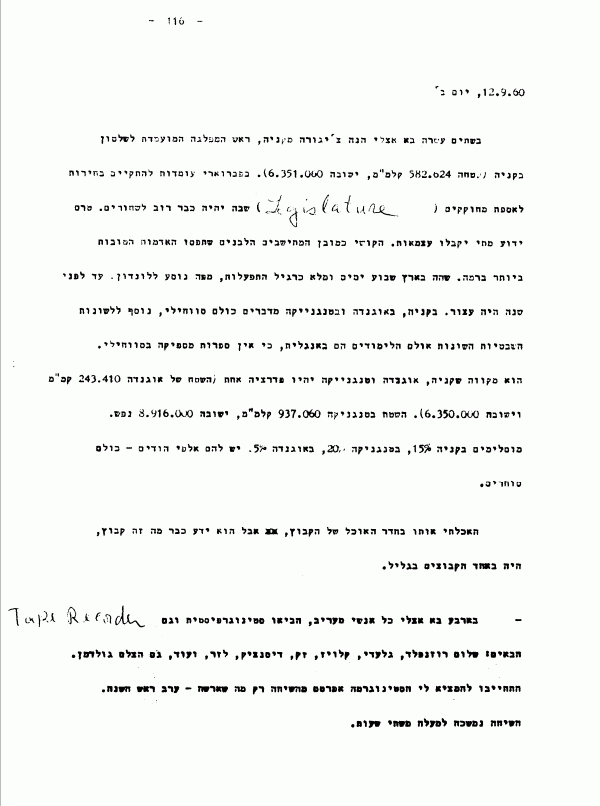 - 116 -
12.9.60, יום ב'
בשתים עשרה בא אצלי הנה צ'יגורה מקניה, ראש המפלגה המועמדת לשלטון
בקניה (שטחה 582.624 קלמ"מ, ישובה 6.351.000). בפברוארי עומדות להתקיים בחירות
לאספת מחוקקים (Legislature) שבה יהיה כבר רוב לשחורים. טרם
ידוע מתי יקבלו עצמאות. הקושי כמובן המתישבים הלבנים שתפסו האדמות הטובות
ביותר ברמה. שהה בארץ שבוע ימים ומלא כרגיל התפעלות, מפה נוסע ללונדון. עד לפני
שנה היה עצור. בקניה, באוגנדה ובטנגנייקה מדברים כולם סווהילי, נוסף ללשונות
השבטיות השונות אולם הלימודים הם באנגלית, כי אין ספרות מספיקה בסווהילי.
הוא מקווה שקניה, אוגנדה וטנגנייקה יהיו פדרציה אחת (השטח של אוגנדה 243.410 קמ"מ
וישובה 6.350.000). השטח בטנגניקה 937.060 קלמ"מ, ישובה 8.916.000 נפש.
מוסלימים בקניה 15%, בטנגניקה 20, באוגנדה 5%. יש להם אלפי הודים - כולם
סוחרים.
האכלתי אותו בחדר האוכל של הקבוץ, אבל הוא ידע כבר מה זה קבוץ,
היה באחד הקבוצים בגליל.
- בארבע בא אצלי כל אנשי מעריב, הביאו סטינוגרפיסטית וגם Tape Recorder
הבאים: שלום רוזנפלד, גלעדי, קלויז, זק, דיסנציק, לזר, ועוד, גם הצלם גולדמן.
התחייבו להמציא לי הסטינוגרמה אפרסם מהשיחה רק מה שארשה - ערב ראש השנה.
השיחה נמשכה למעלה משתי שעות.